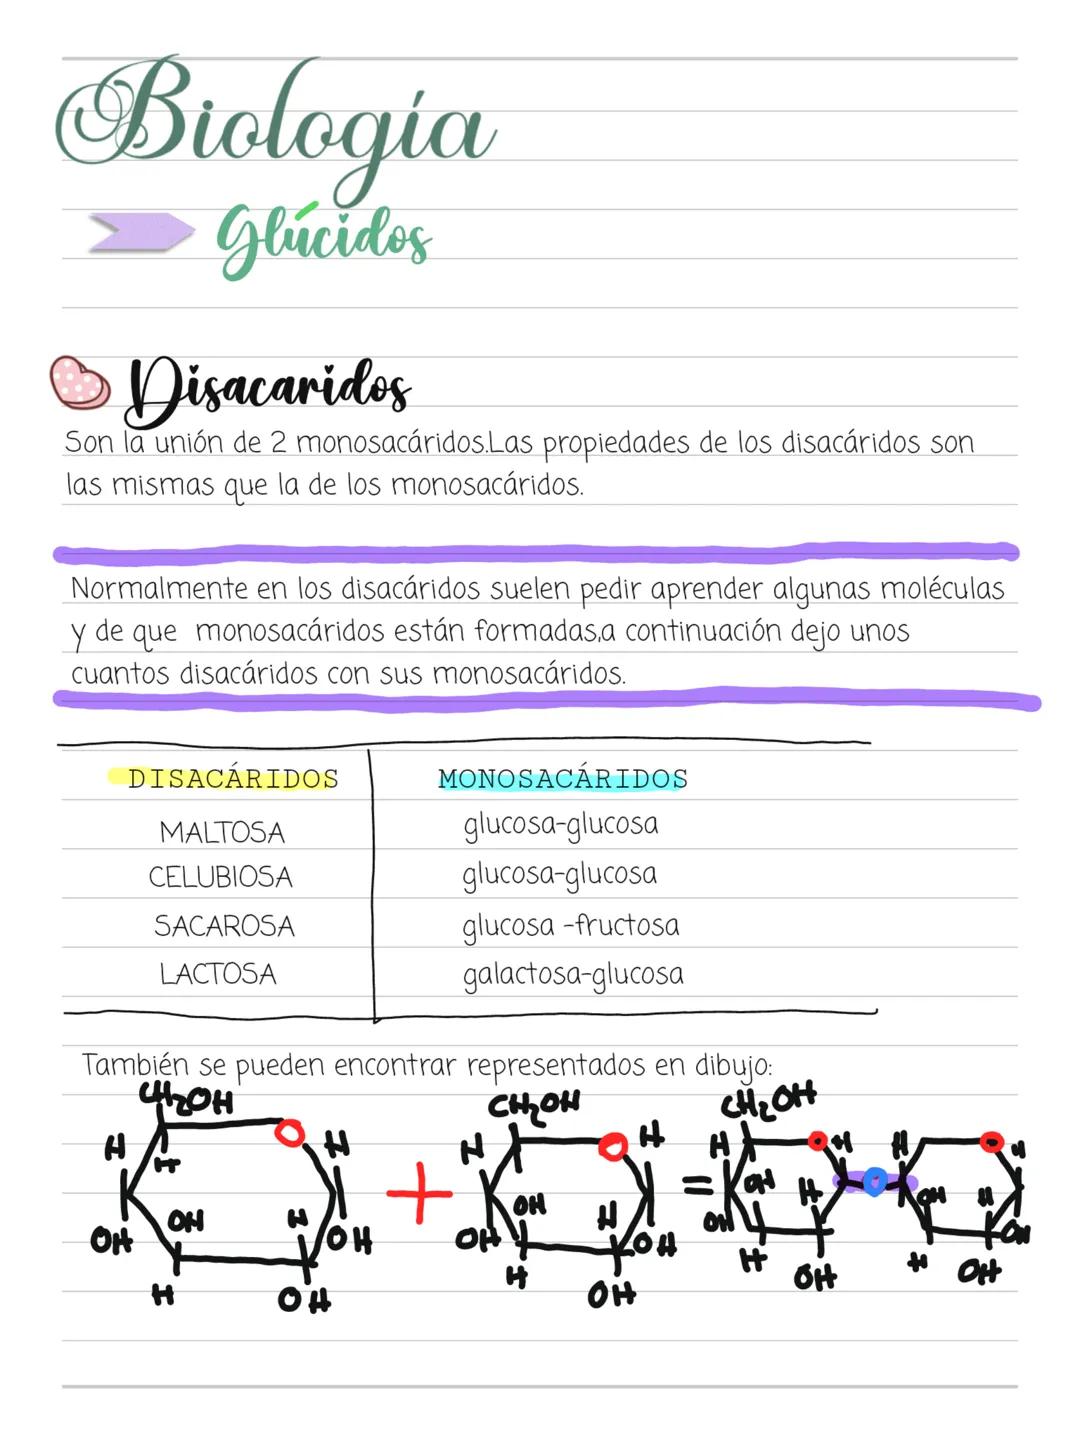 Biología
Glúcidos
Disacaridos
Son la unión de 2 monosacáridos.Las propiedades de los disacáridos son
las mismas que la de los monosacáridos.
Normalmente en los disacáridos suelen pedir aprender algunas moléculas
y de que monosacáridos están formadas,a continuación dejo unos
cuantos disacáridos con sus monosacáridos.
DISACÁRIDOS MONOSACÁRIDOS
MALTOSA glucosa-glucosa
CELUBIOSA glucosa-glucosa
SACAROSA glucosa -fructosa
LACTOSA galactosa-glucosa
También se pueden encontrar representados en dibujo:
CH₂OH CH₂OH CH₂OH
H H H H H H H H
H
OH H OH H OH H OH H
OH OH OH OH OH OH
H OH H OH H OH H OH
+ =